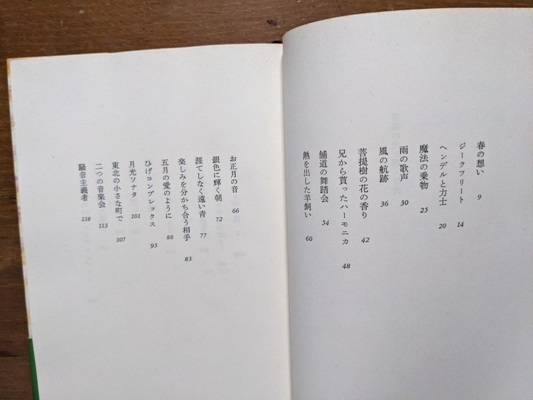 春の想い 9
ジークフリート 14
ヘンデルと力士 20
魔法の乗物 25
雨の歌声 30
風の航跡 36
菩提樹の花の香り 42
兄から貰ったハーモニカ 48
舗道の舞踏会 54
熱を出した羊飼い 60
お正月の音 66
銀色に輝く朝 72
涯てしなく遠い青 77
楽しみを分かち合う相手 83
五月の愛のように 88
ひげコンプレックス 95
月光ソナタ 101
東北の小さな町で 107
二つの音楽会 113
騒音主義者 118